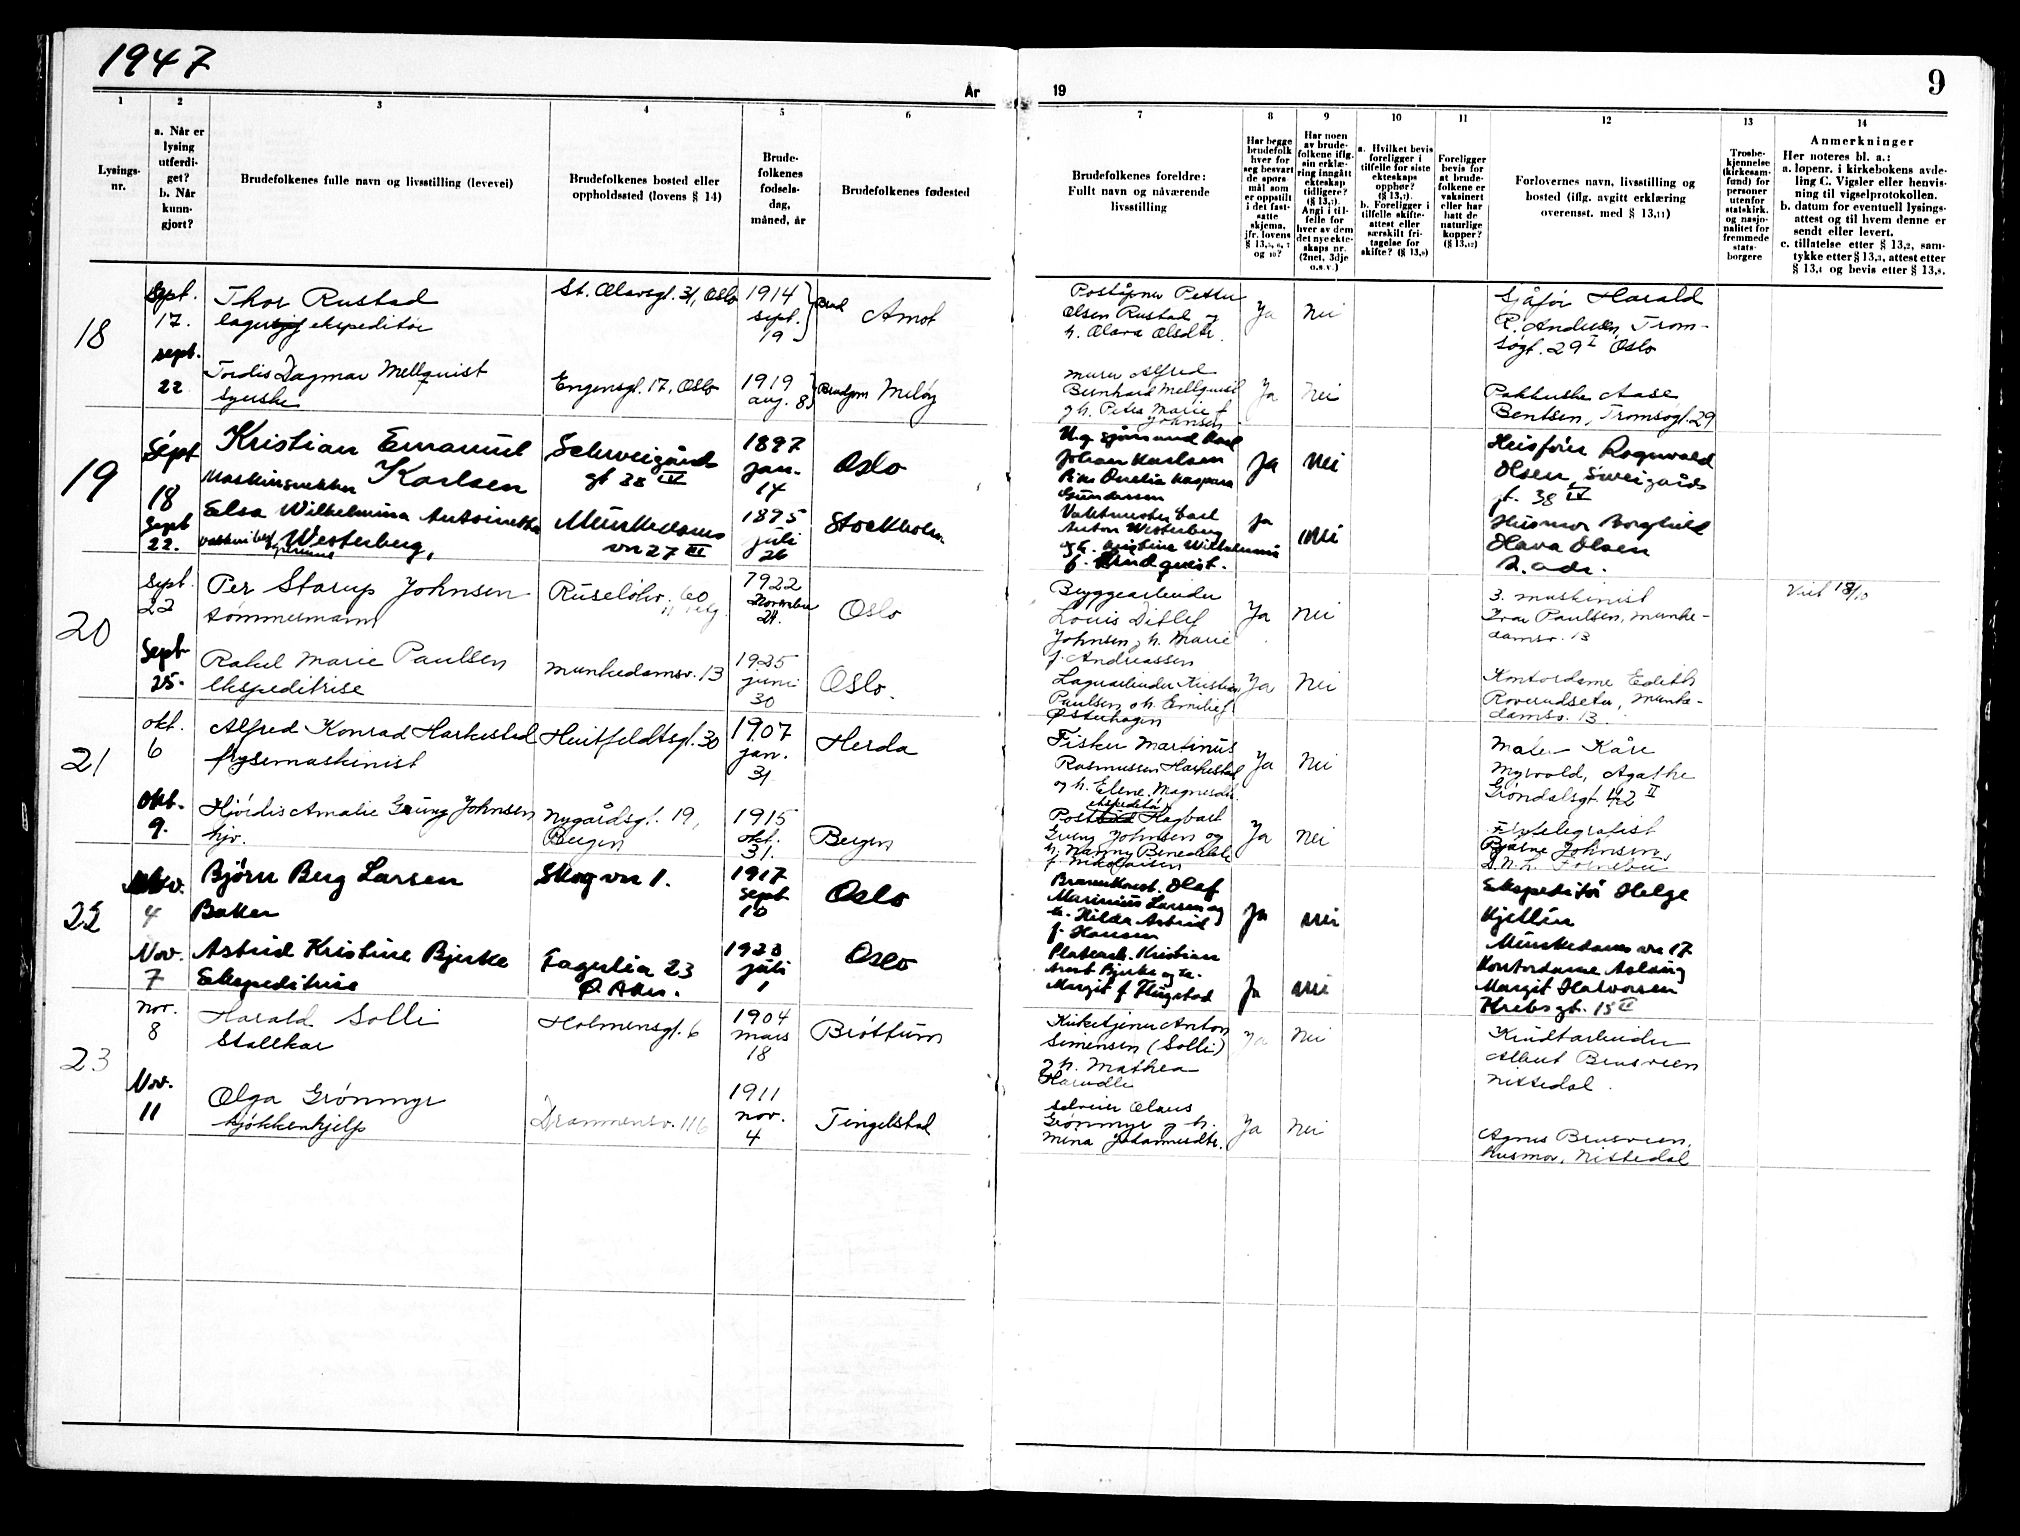 1947
År
19
9
1
2
3
4
5
6
7
8
9
10
11
12
13
14
Lysings-
nr.
a. Når er
lysing
utferdi-
get?
b. Når
kunn-
gjort?
Brudefolkenes fulle navn og livsstilling (levevei)
Brudefolkenes bosted eller
oppholdssted (lovens § 14)
Brude-
folkenes
fødsels-
dag,
måned, år
Brudefolkenes fødested
Brudefolkenes foreldre:
Fullt navn og nåværende
livsstilling
Har begge
brudefolk
hver for
seg besvart
de spørs
mål som
er oppstilt
i det fast-
satte
skjema,
jfr. lovens
§ 13,5, 6, 7
og 10?
Har noen
av brude-
folkene iflg.
sin erklæ-
ring inngått
ekteskap
tidligere?
(§ 13,7).
Angi i til-
felle for
hver av dem
det nye ekte-
skaps nr.
(2net, 3dje
o.s.v.)
a. Hvilket bevis
foreligger i
tilfelle for siste
ekteskaps
opphør?
(§ 13,7).
b. Foreligger i
tilfelle skifte-
attest eller
særskilt fri-
tagelse for
skifte? (§ 13,9)
Foreligger
bevis for
at brude-
folkene er
vaksinert
eller har
hatt de
naturlige
kopper?
(§ 13,12)
Forlovernes navn, livsstilling og
bosted (iflg. avgitt erklæring
overensst. med § 13,11)
Trosbe-
kjennelse
(kirkesam-
fund) for
personer
utenfor
statskirk.
og nasjo-
nalitet for
fremmede
stats-
borgere
Anmerkninger
Her noteres bl. a.:
a. løpenr. i kirkebokens avde-
ling C. Vigsler eller henvis-
ning til vigselprotokollen.
b. datum for eventuell lysings-
attest og til hvem denne er
sendt eller levert.
c. tillatelse etter § 13,2, sam-
tykke etter § 13,3, attest etter
§ 13,4 og bevis etter § 13,8.
18
Sept.
17.
Thor Rustad
lager ekspeditør
St. Olavsgt. 31, Oslo
1914
sept.
19
Brud
Åmot
Poståpner Petter
Olsen Rustad og
h. Olava Olsdtr.
Ja
Nei
Sjåfør Harald
R. Andersen, Trom-
søgt. 29 I Oslo
sept.
22
Tordis Dagmar Mellquist
Syerske
Engensgt. 17, Oslo
1919
aug. 8
Brudgom
Meløy
Murer Alfred
Bernhard Mellquist
og h. Petra Marie f.
Johnsen
Ja
Nei
Pakkerske Aase
Bentsen, Tromsøgt. 29
19
Sept
18
Kristian Emanuel
Maskinsnekker Karlsen
Schweigårds
gt 38 IV
1897
jan.
14
Oslo
U.g. sjømand Karl
Johan Karlsen
Pike Aurelia Kaspara
Gundersen
Ja
Nei
Heisfører Ragnvald
Olsen, Sweigårds
gt. 38 IV
Sept
22.
Elsa Wilhelmina Antoinetta
Westerberg,
Munkedams
vn 27 III
1895
juli
26
Stockholm
Vaktmester Carl
Anton Westerberg
og h. Kristina Wilhelmina
f. Lindquist.
Ja
Nei
Husmor Borghild
Hava Olsen
s. adr.
20
Sept.
22
Per Starup Johnsen
tømmermann
Ruseløkv. 60
1922
November
24.
Oslo
Bryggearbeider
Louis Ditlef
Johnsen, h. Marie
f. Andreassen
Ja
Nei
3. maskinist
Ivar Paulsen, Munke-
damsv. 13
Viet 18/10
Sept
25.
Rakel Marie Paulsen
Ekspeditrise
Munkedamsv. 13
1925
juni
30
Oslo.
Lagerarbeider Kristian
Paulsen o h. Emilie f
Østerhagen
Ja
Nei
Kontordame Edith
Roverudseter, Munke-
damsv. 13.
21
okt.
6
Alfred Konrad Harkestad
frysemaskinist
Huitfeldtsgt. 30
1907
jan.
31
Herdla
Fisker Martinus
Rasmussen Harkestad
og h. Elene Magnesdtr.
Ja
Nei
Maler Kåre
Myrvold, Agathe
Grøndalsgt. 42 II
Okt.
9.
Hjördis Amalie Grung Johnsen
hjv.
Nygårdsgt. 19,
Bergen
1915
okt.
31.
Bergen
ekspeditør
Post Hagbart
Grung Johnsen og
h. Nanny Benedikte
f. Nikolaisen
Ja
Nei
telegrafist
Bjarne Johnsen,
D.N.L. Fornebu
22
Nov.
4
Björn Berg Larsen
Baker
Skogvn 1.
1917
Sept
10
Oslo
Brannkonst. Olaf
Marinius Larsen og
h. Hilda Astrid
f. Hansen
Ja
Nei
Ekspeditør Helge
Kjellin
Munkedamsvn 17
Nov.
7
Astrid Kristine Bjerke
Ekspeditrise
Fagerlia 23
Ø. Aker.
1923
juli
1
Oslo
Platearb. Kristian
Arnt Bjerke og h.
Margit f Flugstad
Ja
Nei
Kontordame Aslaug
Margit Halvorsen
Krebsgt. 15 II
23
nov.
8
Harald Solli
Stallkar
Holmensgt. 6
1904
mars
18
Brøttum
Kirketjener Anton
Simensen (Solli)
og h. Mathea
Ja
Nei
Kruttarbeider
Albert Brusveen
Nittedal.
Nov.
11
Olga Grønmyr
kjøkkenhjelp
Drammensv. 116
1911
nov.
4
Tingelstad
Selveier Olaus
Grønmyr og h.
Mina Johannesdtr.
Ja
Nei
Agnes Brusveen,
Husmor, Nittedal